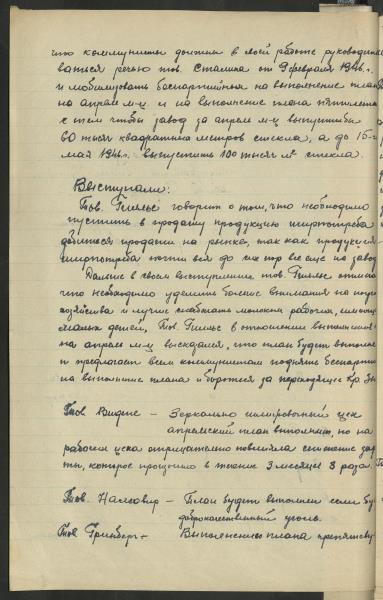 что коммунисты должны в своей работе руководство-
ваться речью тов. Сталина от 9 февраля 1946 г.
и мобилизовать беспартийных на выполнение плана
на апрель м-ц и на выполнение плана пятилетки
с тем чтобы завод за апрель м-ц выпустил бы
60 тысяч квадратных метров стекла, а до 15-
мая 1946 г. выпустить 100 тысяч м² стекла.
Выступали:
Тов. говорит о том, что необходимо
пустить в продажу продукцию ширпотреба
добиться продажи на рынке, так как продукция
ширпотреба почти вся до сих пор все еще на завод
Далее в своем выступлении тов. отмечает
что необходимо уделить более внимания на подсоб
хозяйства и лучше снабжать молоком рабочих, имеющих
малых детей, Тов. в отношении выполнения
на апрель м-ц высказался, что план будет выполнен
и предлагает всем коммунистам поднять беспартий
на выполнение плана и бороться за переходящее Кр. Зн
Тов. — Зеркально шлифовочный цех
апрельский план выполнит, но на
рабочем цеха отрицательно повлияла снижение зар
ты, которое прошло в течение 3 месяцев 3 раза.
Тов. — План будет выполнен если бу
доброкачественный уголь.
Тов Гринберг — Выполнению плана препятству